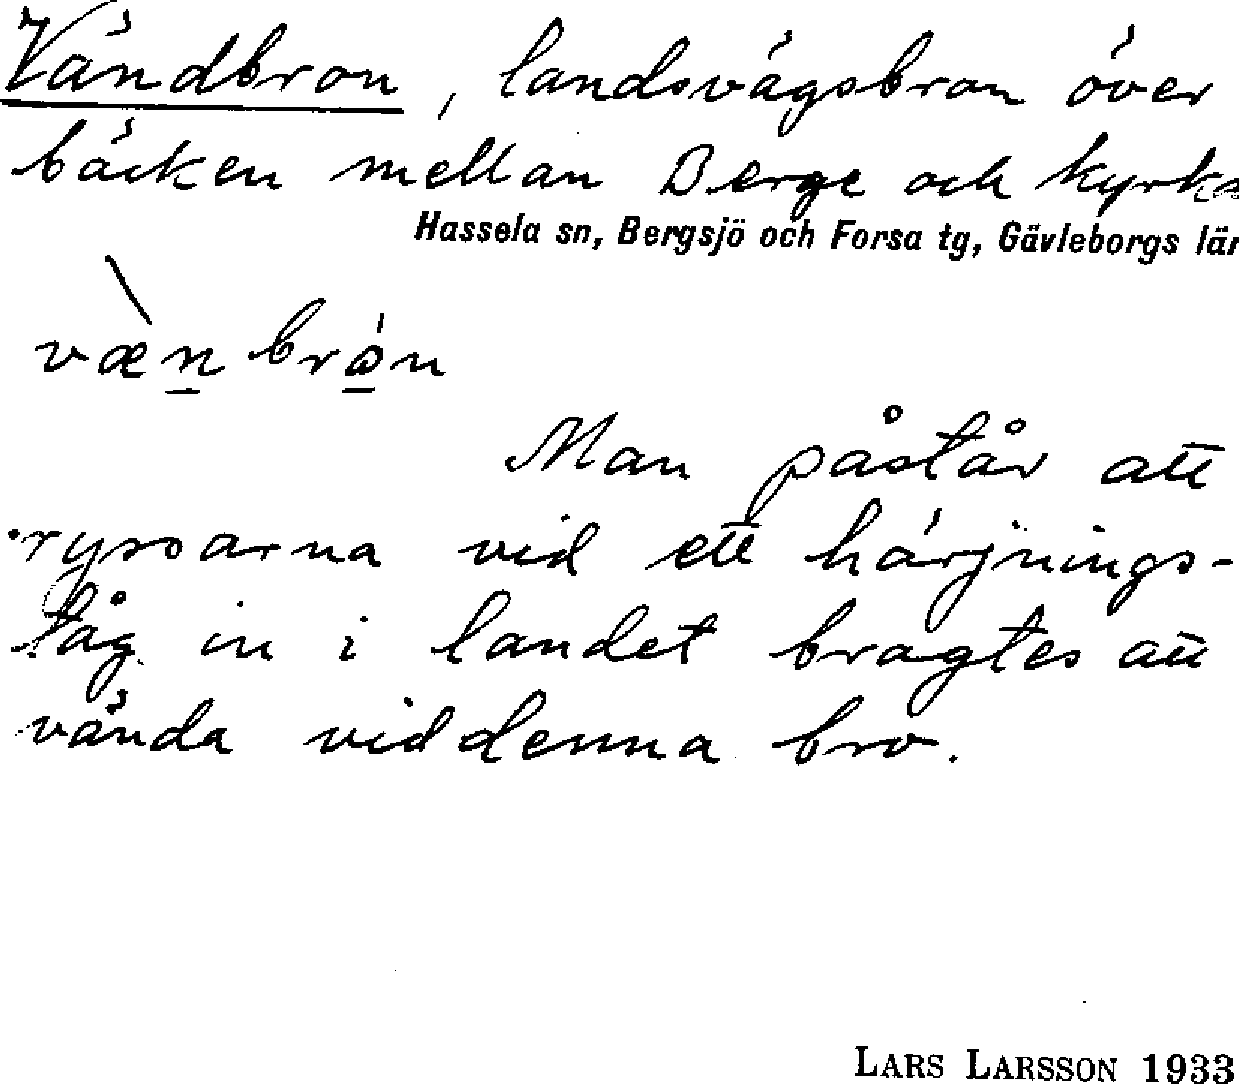 Vändbron, landsvägsbron över
bäcken mellan Berge och kyrk
Hassela sn, Bergsjö och Forsa tg, Gävleborgs län
Man påstår att
ryssarna vid ett härjnings-
tåg in i landet bragtes att
vända vid denna bro.
LARS LARSSON 1933